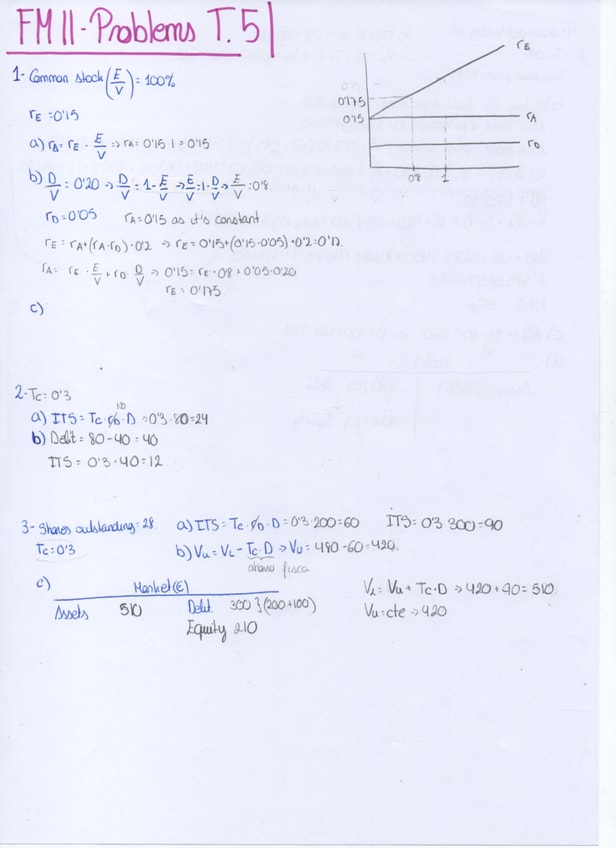 FM II - Problems T. 5
1- Common stock (E/V) = 100%
rE = 0'15
a) rA = rE · E/V => rA = 0'15 · 1 = 0'15
b) D/V = 0'20 -> D/V = 1 - E/V -> E/V = 1 - D/V -> E/V = 0'8
rD = 0'05 rA = 0'15 as it's constant
rE = rA + (rA - rD) · 0'2 -> rE = 0'15 + (0'15 - 0'05) · 0'2 = 0'17
rA = rE · E/V + rD · D/V -> 0'15 = rE · 0'8 + 0'05 · 0'20
rE = 0'175
c)
rE
0'175
0'15
rA
rD
0'8 1
2- Tc = 0'3
a) ITS = Tc · rD · D -> 0'3 · 80 = 24
NO
b) Debt = 80 - 40 = 40
ITS = 0'3 · 40 = 12
3- Shares outstanding = 28
Tc = 0'3
a) ITS = Tc · rD · D = 0'3 · 200 = 60 ITS = 0'3 · 300 = 90
b) Vu = VL - Tc · D -> Vu = 480 - 60 = 420
ahorro fiscal
c) Market (€)
Assets 510 Debt 300 } (200 + 100)
Equity 210
VL = Vu + Tc · D -> 420 + 90 = 510
Vu = cte -> 420